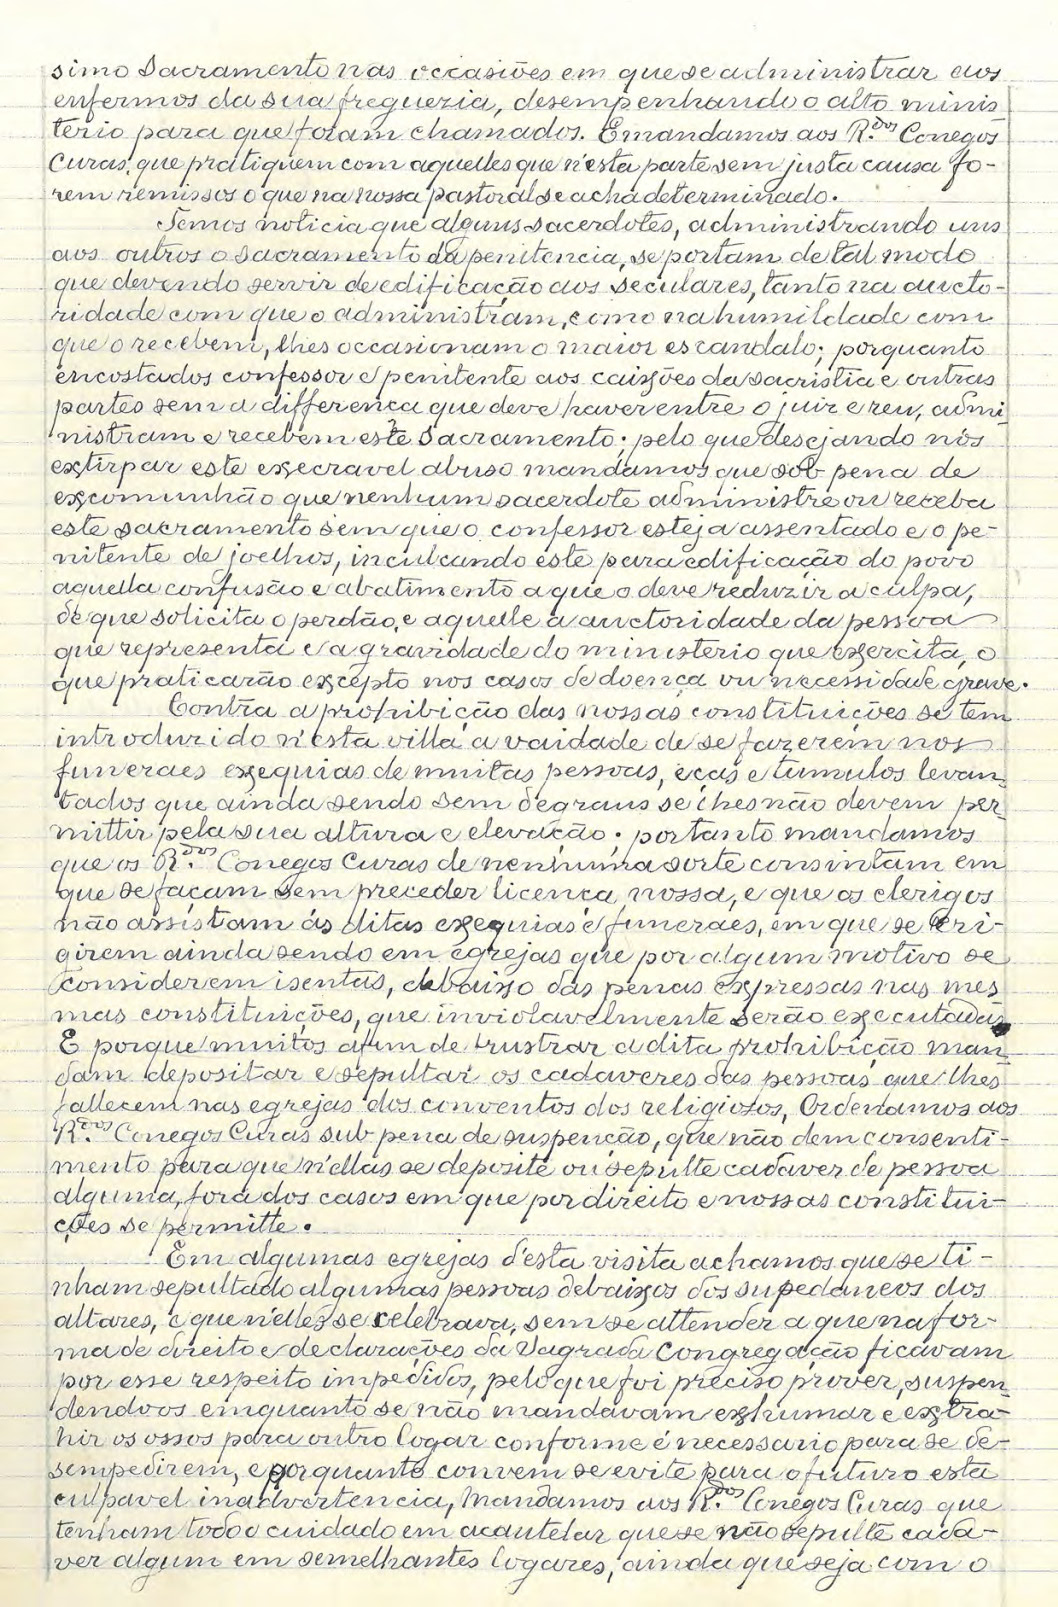 simo Sacramento nas occasiões em que se administrar aos
enfermos da sua freguezia, desempenhando o alto minis
terio para que foram chamados. E mandamos aos R.dos Conegos
Curas, que pratiquem com aquelles que n'esta parte sem justa causa fo-
rem remissos o que na nossa pastoral se acha determinado.
Temos noticia que alguns sacerdotes, administrando uns
aos outros o sacramento da penitencia, se portam de tal modo
que devendo servir de edificação aos seculares, tanto na aucto-
ridade com que o administram, como na humildade com
que o recebem, lhes occasionam o maior escandalo; porquanto
encostados confessor e penitente aos caixões da sacristia e outras
partes sem a differença que deve haver entre o juiz e reu, admi
nistram e recebem este Sacramento; pelo que desejando nós
extirpar este execravel abuso mandamos que sob pena de
excomunhão que nenhum sacerdote administre ou receba
este sacramento sem que o confessor esteja assentado e o pe-
nitente de joelhos, inculcando este para edificação do povo
aquella confusão e abatimento a que o deve reduzir a culpa,
de que solicita o perdão, e aquelle a auctoridade da pessoa
que representa e a gravidade do ministerio que exercita, o
que praticarão excepto nos casos de doença ou necessidade grave.
Contra a prohibição das nossas constituições se tem
introduzido n'esta villa a vaidade de se fazerem nos
funeraes exequias de muitas pessoas, eças e tumulos levan
tados que ainda sendo sem degraus se lhes não devem per
mittir pela sua altura e elevação. portanto mandamos
que os R.dos Conegos Curas de nenhuma sorte consintam em
que se façam sem preceder licença nossa, e que os clerigos
não assistam ás ditas exequias e funeraes, em que se eri-
girem ainda sendo em egrejas que por algum motivo se
considerem isentas, debaixo das penas expressas nas mes
mas constituições, que inviolavelmente serão executadas
E porque muitos afim de frustrar a dita prohibição man
dam depositar e sepultar os cadaveres das pessoas que lhes
fallecem nas egrejas dos conventos dos religiosos, Ordenamos aos
R.dos Conegos Curas sub pena de suspenção, que não dem consenti-
mento para que n'ellas se deposite ou sepulte cadaver de pessoa
alguma, fora dos casos em que por direito e nossas constitui-
ções se permitte.
Em algumas egrejas d'esta visita achamos que se ti-
nham sepultado algumas pessoas debaixos dos supedaneos dos
altares, e que n'elles se celebrava, sem se attender a que na for-
ma de direito e declarações da Sagrada Congregação ficavam
por esse respeito impedidos, pelo que foi preciso prover, suspen
dendo os emquanto se não mandavam exhumar e extra-
hir os ossos para outro logar conforme é necessario para se de-
sempedirem, e porquanto convem se evite para o futuro esta
culpavel inadvertencia, Mandamos aos R.dos Conegos Curas que
tenham todo o cuidado em acautelar que se não sepulte cada-
ver algum em semelhantes logares, ainda que seja com o